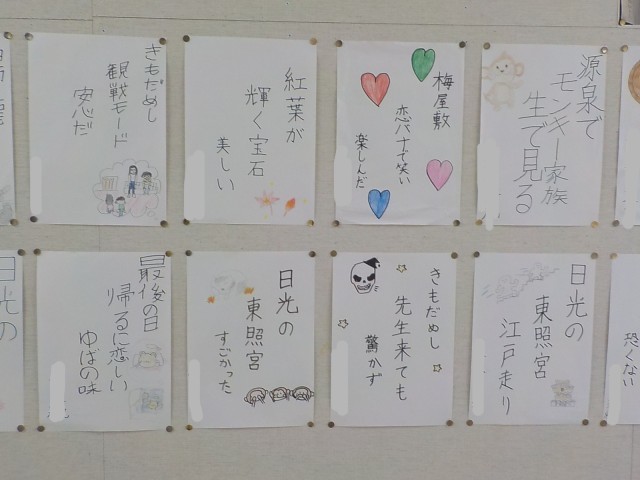 きもだめし
観戦モード
安心だ
紅葉が
輝く宝石
美しい
梅屋敷
恋バナで笑い
楽しんだ
源泉で
モンキー家族
生で見る
日光の
最後の日
帰るに恋しい
ゆばの味
日光の
東照宮
すごかった
きもだめし
先生来ても
驚かず
日光の
東照宮
江戸走り
恐くない